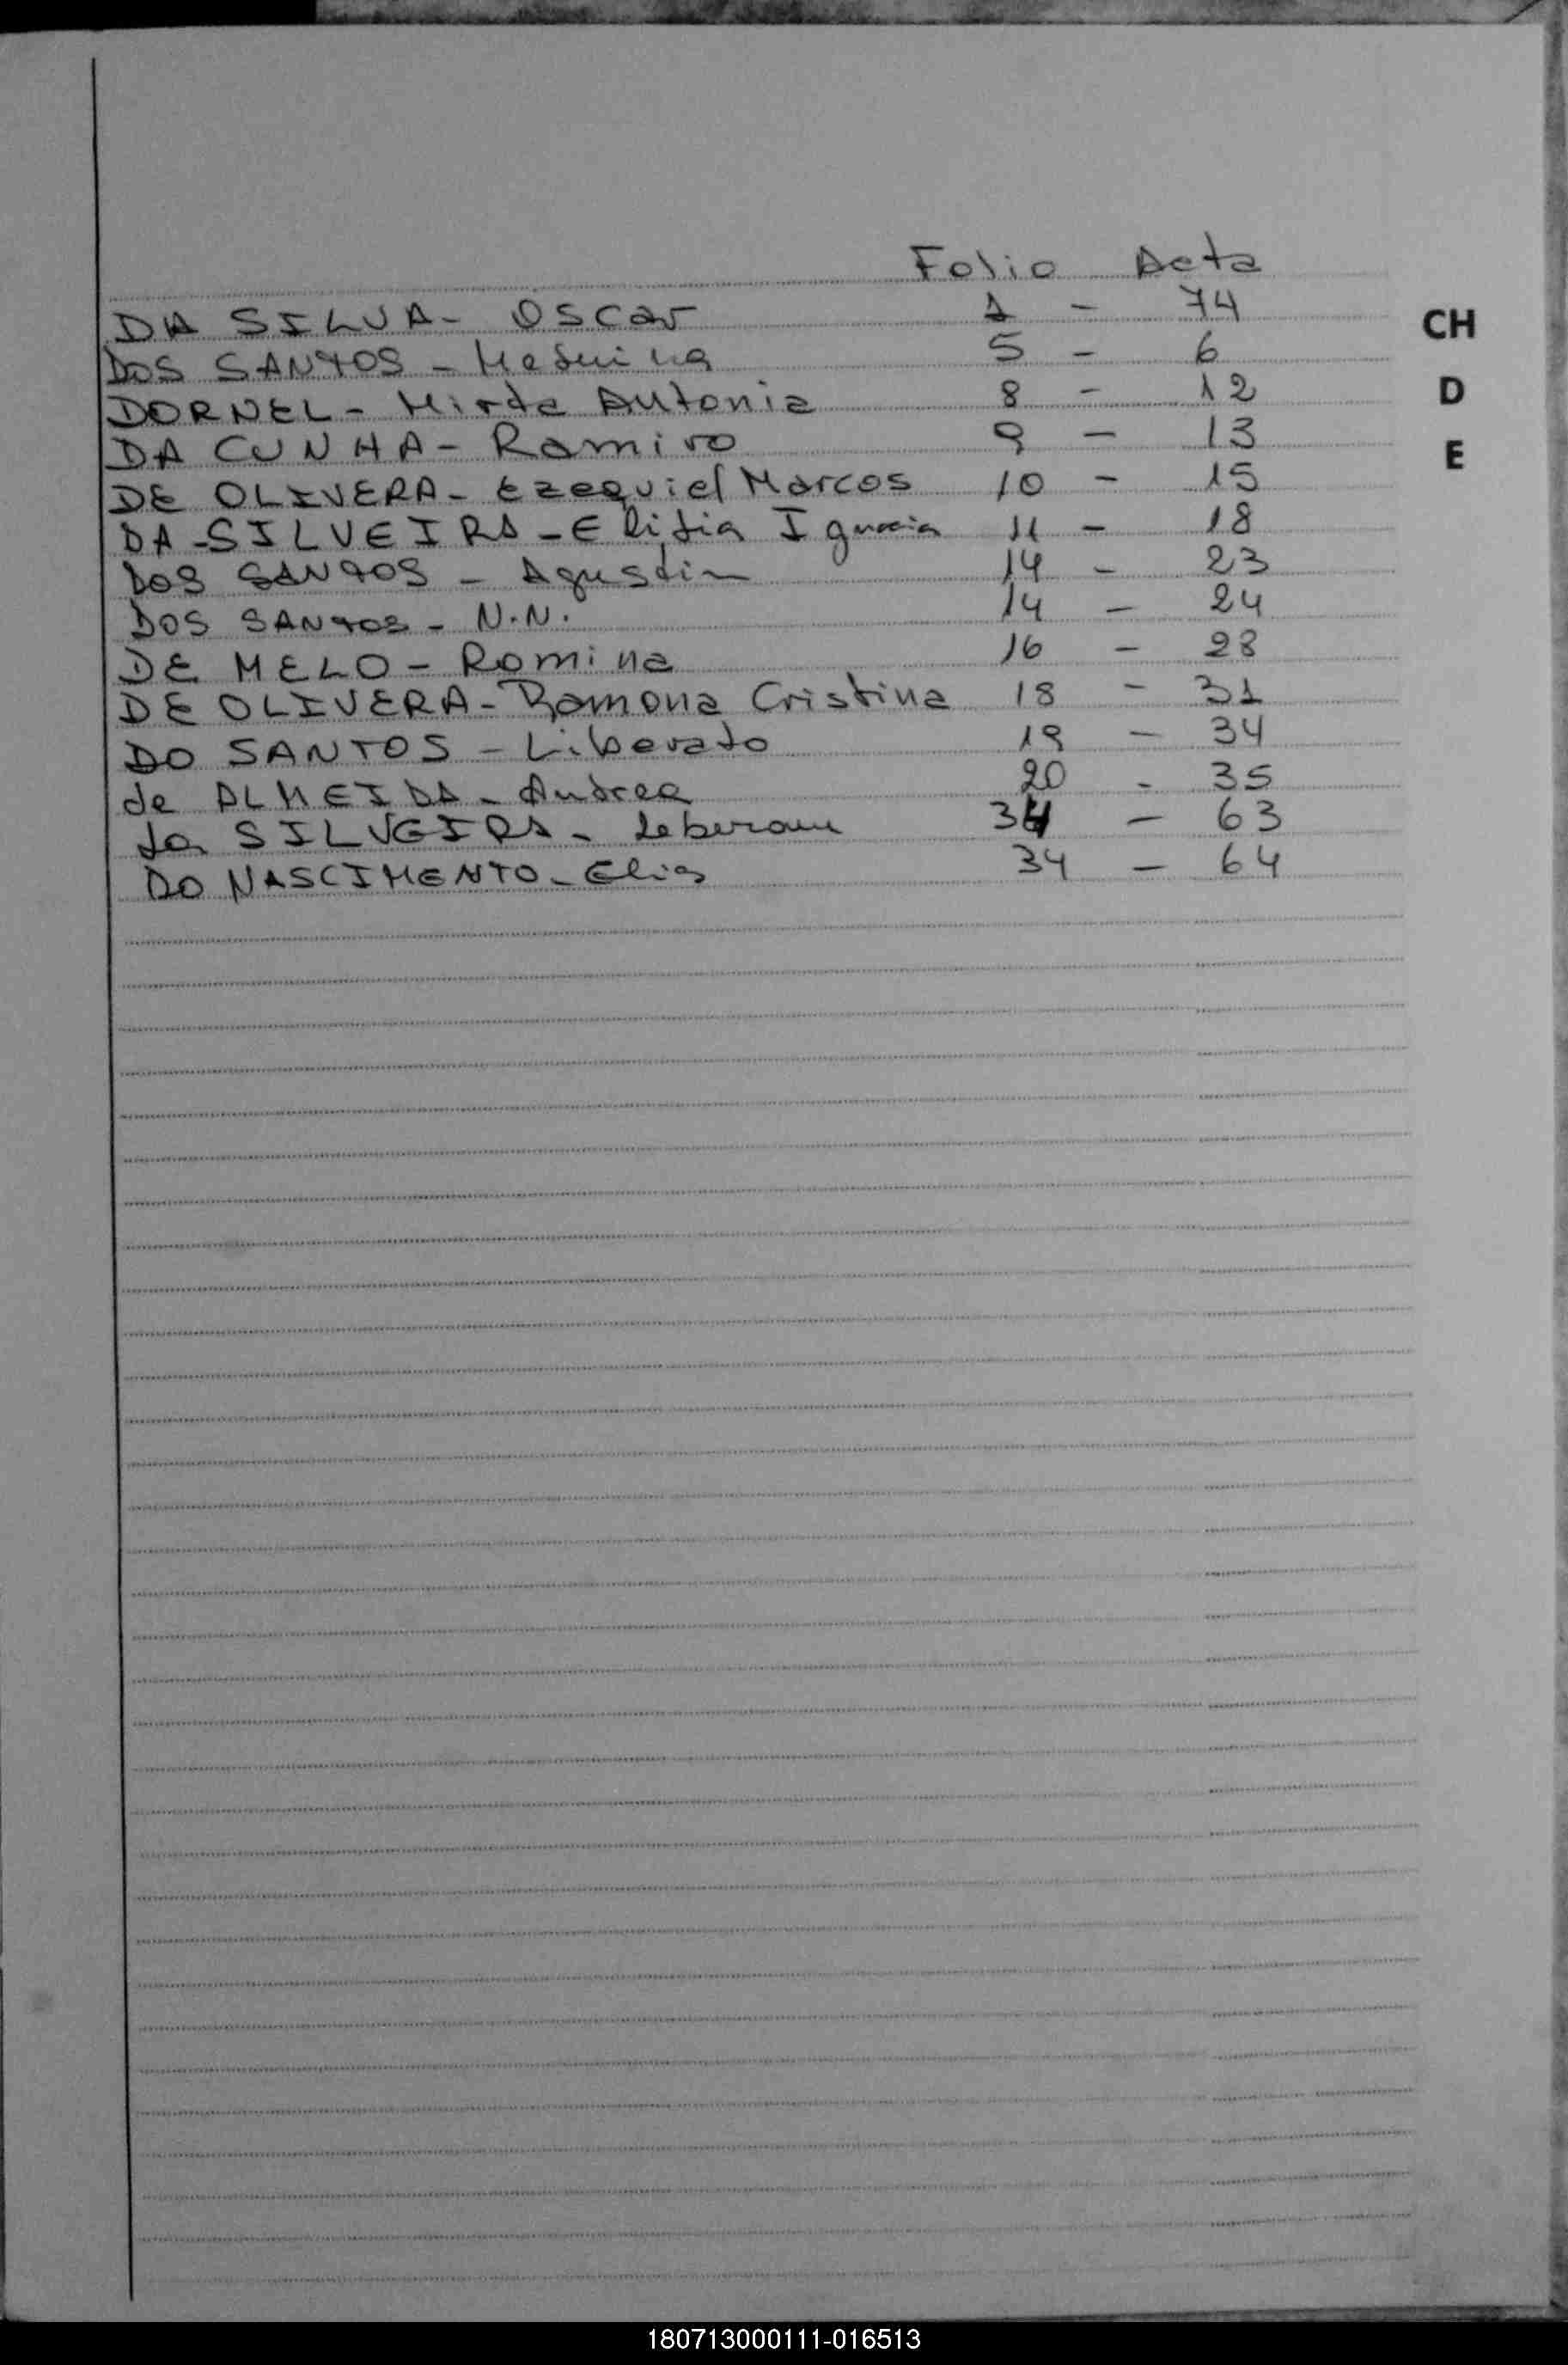 Folio Acta
DA SILVA - Oscar 1 - 74
DOS SANTOS - 5 - 6
DORNEL - Mirta Antonia 8 - 12
DA CUNHA - Ramiro 9 - 13
DE OLIVERA - Ezequiel Marcos 10 - 15
DA SILVEIRA - Elidia Ignacia 11 - 18
DOS SANTOS - Agustin 14 - 23
DOS SANTOS - N.N. 14 - 24
DE MELO - Romina 16 - 28
DE OLIVERA - Ramona Cristina 18 - 31
DO SANTOS - Liberato 19 - 34
de ALMEIDA - Andrea 20 - 35
da SILVEIRA - 34 - 63
DO NASCIMENTO - Elias 34 - 64
CH
D
E
180713000111-016513